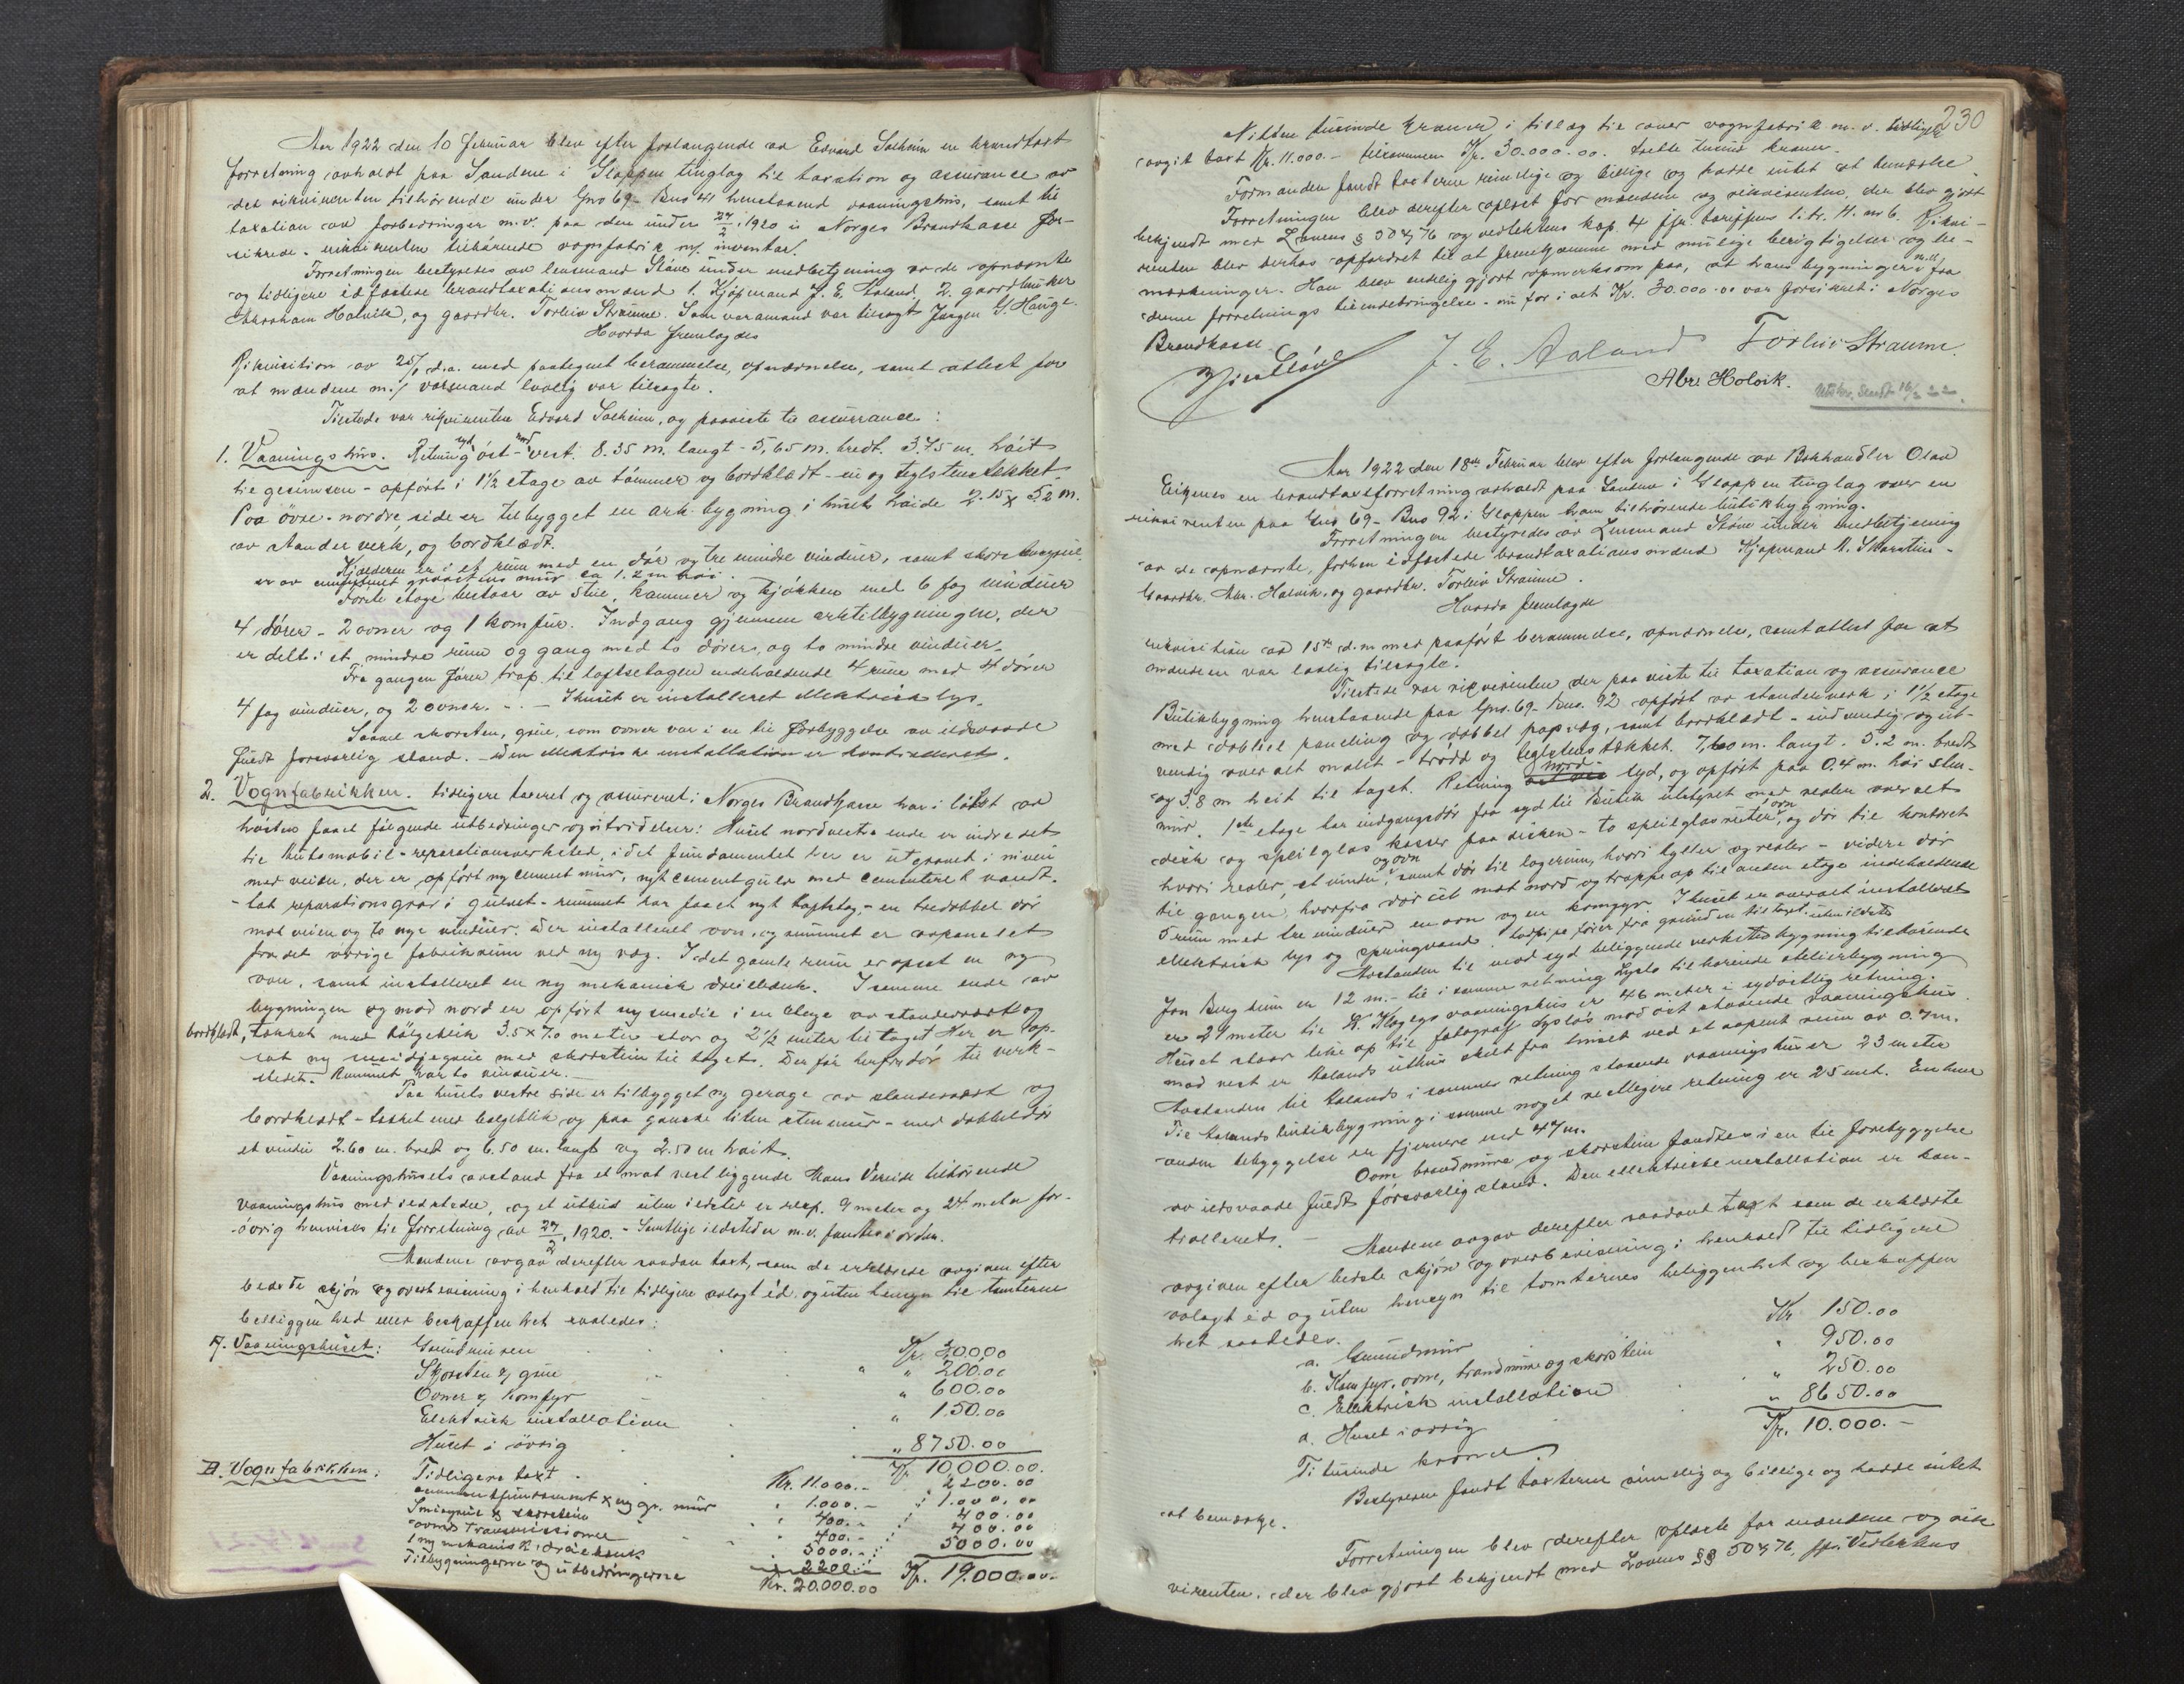 Aar 1922 den 10 Februar blev efter forlangende av Edvard Solheim en brandtaxt
forretning avholdt paa Sandene i Gloppen tinglag til taxation og assurance av
det rekvirenten tilhørende under Gno 69 - Bno 41 henstaaend vaaningshus, samt til
taxation av forbedringer m.v. paa den under 27/2 1920 i Norges Brandkasse for-
sikrede - rekvirenten tilhørende vognfabrik m/ inventar.
Forretningen bestyredes av lensmand Støve under medbetjening av de opnævnte
og tidligere edfæstede brandtaxationsmænd 1. Kjøpmand J. E. Aaland, 2. gaardbruker
Abraham Holvik, og gaardbr. Torleiv Straume. Som varamand var tilsagt Jørgen G. Hauge.
Hvorda fremlagdes
Rikvisition av 25/1 d.a. med paategnet berammelse, opnævnelse, samt attest for
at mændene m/ varamand lovlig var tilsagte.
Tilstede var rekvirenten Edvard Solheim, og paaviste til assurance:
1. Vaaningshus. Retning syd øst - nord vest. 8.35 m. langt - 5,65 m. bredt. 3.75 m. høit
til gesimsen - opført i 1½ etage av tømmer og bordklædt - ny og teglstenstækket
Paa øvre - nordre side er tilbygget en ark-bygning i husets høide 2.15 x 5.2 m.
av stander verk, og bordklædt.
Kjælderen er i et rum med en dør og tre mindre vinduer, samt
er av graastens mur ca 1.2 m høi.
Første etage bestaar av stue, kammer og kjøkken med 6 fag vinduer
4 dører - 2 ovner og 1 komfur. Indgang gjennem arktilbygningen, der
er delt i et mindre rum og gang med to dører, og to mindre vinduer.
Fra gangen fører trap til loftsetagen indeholdende 4 rum med 4 dører
4 fag vinduer, og 2 ovner. - - Ihuset er installeret elektrisk lys.
Saavel skorsten, grue, som ovner var i en til forbyggelse av ildsvaade
fuldt forsvarlig stand. - Den elektriske installation er kontrolleret.
2. Vognfabrikken. tidligere taxeret og assureret i Norges Brandkasse har i løpet av
høsten faaet følgende utbedringer og utvidelser: Huset nordvestre ende er indredet
til Automobil-reparationsverksted, idet fundamentet her er utgravet i niveu
med veien, der er opført ny cement mur, nyt cementgulv med cementeret vandt-
tæt reparationsgrav i gulvet - rummet har faaet nyt loftslag, - en tredobbel dør
mot veien og to nye vinduer. Der installeret ovn, og rummet er avpanelet
fra det øvrige fabrikrum ved ny væg. I det gamle rum er opsat en ny
ovn, samt installeret en ny mekanisk dreiebænk. I samme ende av
bygningen og mod nord er opført ny smedie i en etage av standerverk og
bordklædt, tækket med bølgeblik 3.5 x 7.0 meter stor og 2½ meter til taget Her er op-
sat ny smidjegrue med skorstein til taget. Der før herfra dør til verk-
stedet. Rummet har to vinduer.
Paa husets vestre side er tilbygget ny garage av standerverk og
bordklædt - tækket med bølgeblik og paa ganske liten stenmur - med dobbeldør
et vindu 2.60 m. bred og 6.50 m. langt og 2.50 m høit.
Vaaningshusets avstand fra et mot vest liggende Hans Vereide tilhørende
vaaningshus med ildsteder, og et uthus uten ildsted er resp. 9 meter og 24 meter for-
øvrig henvises til forretning av 27/2 1920. - Samtlige ildsteder m.v. fandtes i orden.
Mændene avgav derefter saadan taxt, som de erklærede avgiven efter
bedste skjøn og overbevisning i henhold til tidligere avlagt ed. og uten hensyn til tomterne
beliggen hed eller beskaffen het saaledes:
A. Vaaningshuset: Grundmuren Kr. 300.00
Skorsten & grue " 200.00
Ovner & komfyr " 600.00
Elektrisk installation " 150.00
Huset i øvrig " 8750.00
Kr. 10,000.00.
B. Vognfabrikken: Tidligere taxt. Kr. 11.000.- 2200.00
fundament & ny gr. mur " 1.000.- " 1.000.00
Smidjegrue & skorstein " 400.- " 400.00
ovn & Transmissioner " 400.- " 400.00
1 ny mekanisk dreiebenk " 5000.- " 5000.00
Tilbygningerne og utbedringerne 2200
Kr. 20.000.00 Kr. 19.000.00.
230
Nitten tusinde kroner, i tillæg til over vognfabrik m. v. tidligere
avgit taxt Kr. 11.000.- tilsammen Kr. 30.000.00. trette tusind kroner.
Formanden fandt taxterne rimelige og billige og hadde intet at bemærke
Forretningen blev derefter oplæst for mændene og rekvirenten, der blev gjort
bekjendt med Lovens § 50 & 76 og vedtektens kap. 4 jfr. tariffens 1. tr. H. nr 6. Rikvi-
renten blev derhos opfordret til at fremkomme med mulige berigtigelser og be-
merkninger. Han blev endelig gjort opmerksom paa, at hans bygninger m.v. fra
denne forretnings tilendebringelse - nu for i alt Kr. 30.000.00 var forsikret i Norges
Brandkasse
J. E. Aaland Torleiv Straume.
Abr. Holvik.
Utskr. sendt 16/2 22.
Aar 1922 den 18de Februar blev efter forlangende av Bokhandler Olav
Eikenes en brandtaxtforretning avholdt paa Sandene i Gloppen tinglag over en
rikvirenten paa Gno 69 - Bno 92 i Gloppen ham tilhørende butikbygning.
Forretningen bestyredes av Lensmand Støve under medbetjening
av de opnævnte, forhen edfæstede brandtaxationsmænd Kjøpmand N. Skarstein -
Gaardbr. Abr. Holvik, og gaardbr. Torleiv Straume.
Hvorda fremlagdes
rikvisition av 15de d.m. med paaført berammelse, opnævnelse, samt attest for at
mændene var lovlig tilsagte.
Tilstede var rikvirenten der paa viste til taxation og assurance
Butikbygning henstaaende paa Gno. 69 - Bno. 92 opført av standerverk i 1½ etage
med dobbel paneling og dobbel papvæg, samt bordklædt - indvendig og ut-
vendig over alt malt - trødd og teglstenstækket. 7,60 m. langt. 5.2 m. bredt
og 3.8 m høit til taget. Retning nord - syd, og opført paa 0.4 m. høi sten-
mur. 1ste etage har indgangsdør fra syd til Butik utstyret med reoler overalt
disk og speilglas kasser paa disken - to speilglasruter, ovn og dør til kontoret
hvori reoler, et vindu og ovn, samt dør til lagerrum, hvori hylder og reoler - videre dør
til gangen, hvorfra dør ut mot nord og trappe op til anden etage indeholdende
3 rum med tre vinduer en ovn og en komfyr I huset er overalt installeret
elektrisk lys og springvand. Luftpipe fører fra grunden til taget.
Avstanden til mod syd beliggende verkstedbygning tilhørende
Jon Berg heim er 12 m. - til i samme retning Lyslo tilhørende atelierbygning
er 21 meter til G. Hogegs vaaningshus er 46 meter i sydøstlig retning.
Huset staar like op til fotograf Lyslos mod øst staaende vaaningshus.
mod vest er Aalands uthus skilt fra huset ved et aapent rum av 0.7 m.
Avstanden til Aalands i sammes retning staaende vaaningshus er 23 meter
Til Aalands butikbygning i samme noget vestligere retning er 25 met. Enhver
anden bebyggelse er fjernere end 47 m.
Ovne brandmure og skorsten fandtes i en til forebyggelse
av ildsvaade fuldt forsvarlig stand. Den elektriske installation er kon-
trolleret. -
Mændene avgav derefter saadant taxt som de erklærte
avgiven efter bedste skjøn og overbevisning i henhold til tidligere
avlagt ed og uten hensyn til tomternes beliggenhet og beskaffen
het saaledes.
a. Grundmur Kr 150.00
b. Komfyr, ovne, brandmure og skorstein " 950.00
c. Elektrisk installation " 250.00
d. Huset i øvrig " 8650.00
Kr. 10.000.-
Ti tusinde kroner
Bestyreren fandt taxterne rimelig og billige og hadde intet
at bemærke.
Forretningen blev derefter oplæste for mændene og rik
virenten, der blev gjort bekjendt med Lovens §§ 50 & 76, jfr. Vedtektens